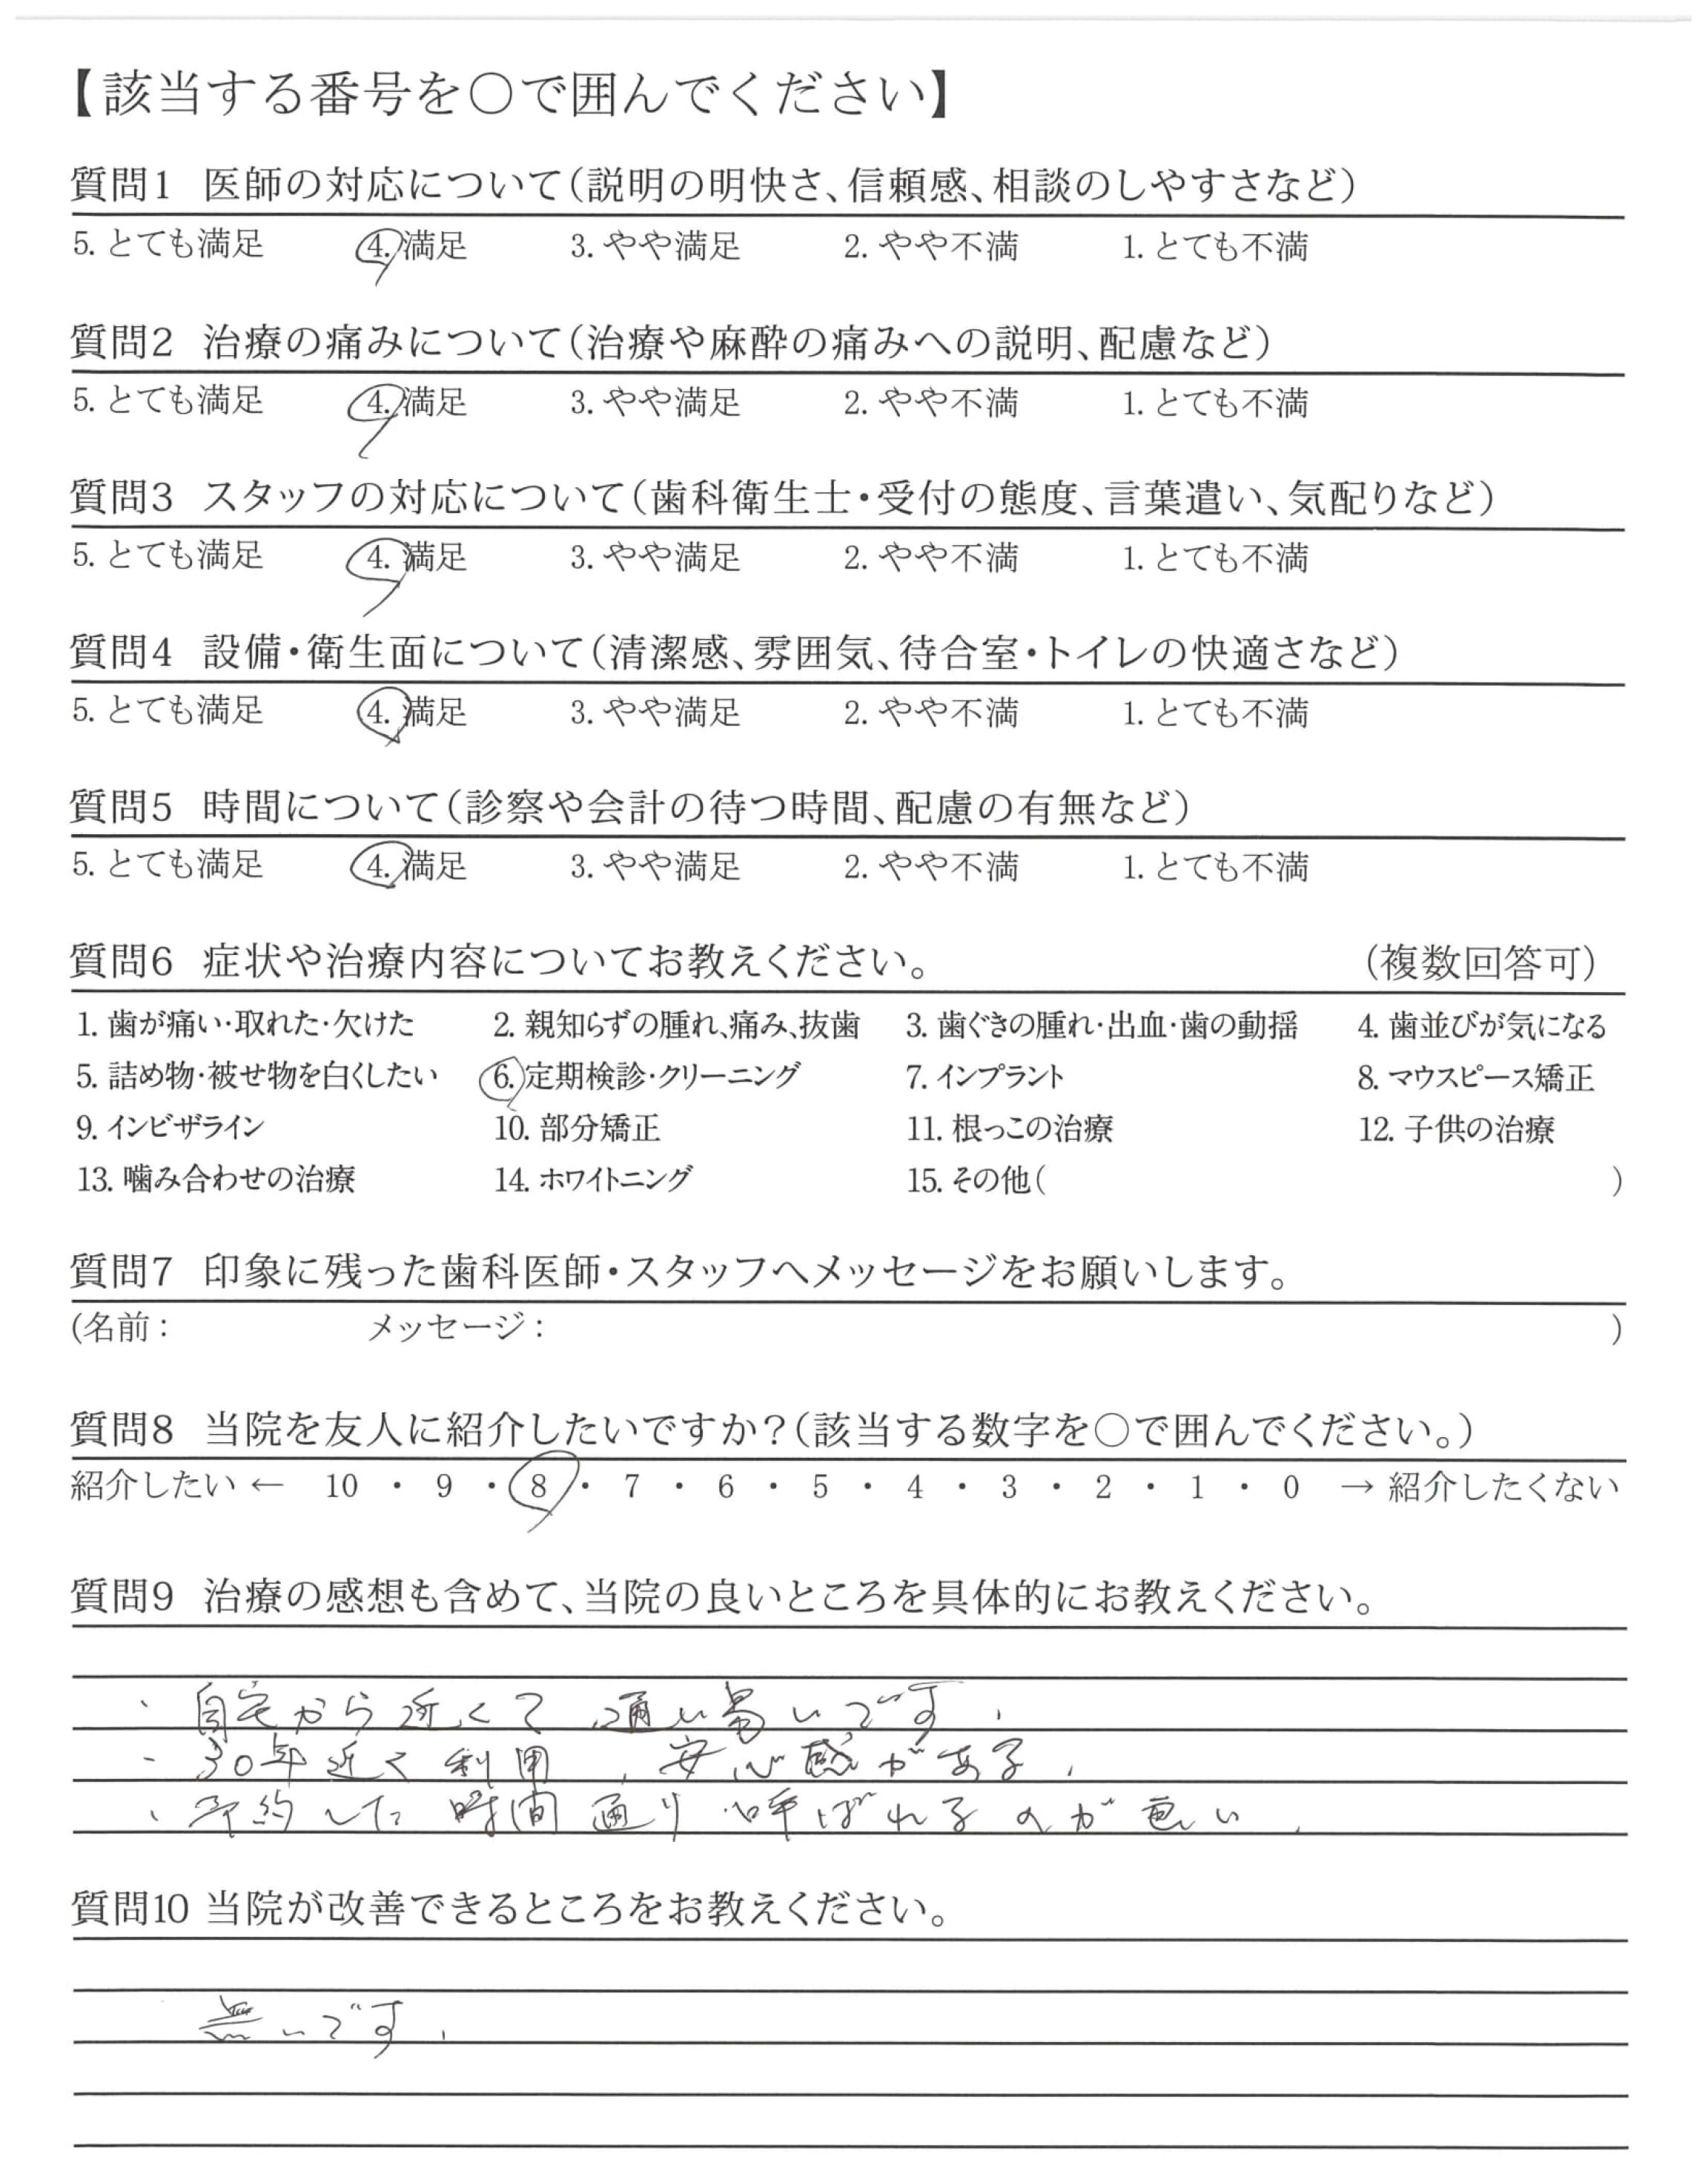 【該当する番号を○で囲んでください】
質問1 医師の対応について(説明の明快さ、信頼感、相談のしやすさなど)
5. とても満足 4. 満足 3. やや満足 2. やや不満 1. とても不満
質問2 治療の痛みについて(治療や麻酔の痛みへの説明、配慮など)
5. とても満足 4. 満足 3. やや満足 2. やや不満 1. とても不満
質問3 スタッフの対応について(歯科衛生士・受付の態度、言葉遣い、気配りなど)
5. とても満足 4. 満足 3. やや満足 2. やや不満 1. とても不満
質問4 設備・衛生面について(清潔感、雰囲気、待合室・トイレの快適さなど)
5. とても満足 4. 満足 3. やや満足 2. やや不満 1. とても不満
質問5 時間について(診察や会計の待つ時間、配慮の有無など)
5. とても満足 4. 満足 3. やや満足 2. やや不満 1. とても不満
質問6 症状や治療内容についてお教えください。 (複数回答可)
1. 歯が痛い・取れた・欠けた 2. 親知らずの腫れ、痛み、抜歯 3. 歯ぐきの腫れ・出血・歯の動揺 4. 歯並びが気になる
5. 詰め物・被せ物を白くしたい 6. 定期検診・クリーニング 7. インプラント 8. マウスピース矯正
9. インビザライン 10. 部分矯正 11. 根っこの治療 12. 子供の治療
13. 噛み合わせの治療 14. ホワイトニング 15. その他( )
質問7 印象に残った歯科医師・スタッフへメッセージをお願いします。
(名前: メッセージ: )
質問8 当院を友人に紹介したいですか?(該当する数字を○で囲んでください。)
紹介したい ← 10 ・ 9 ・ 8 ・ 7 ・ 6 ・ 5 ・ 4 ・ 3 ・ 2 ・ 1 ・ 0 → 紹介したくない
質問9 治療の感想も含めて、当院の良いところを具体的にお教えください。
・自宅から近くて通い易いです。
・30年近く利用、安心感がある。
・予約した時間通り呼ばれるのが良い。
質問10 当院が改善できるところをお教えください。
無いです。